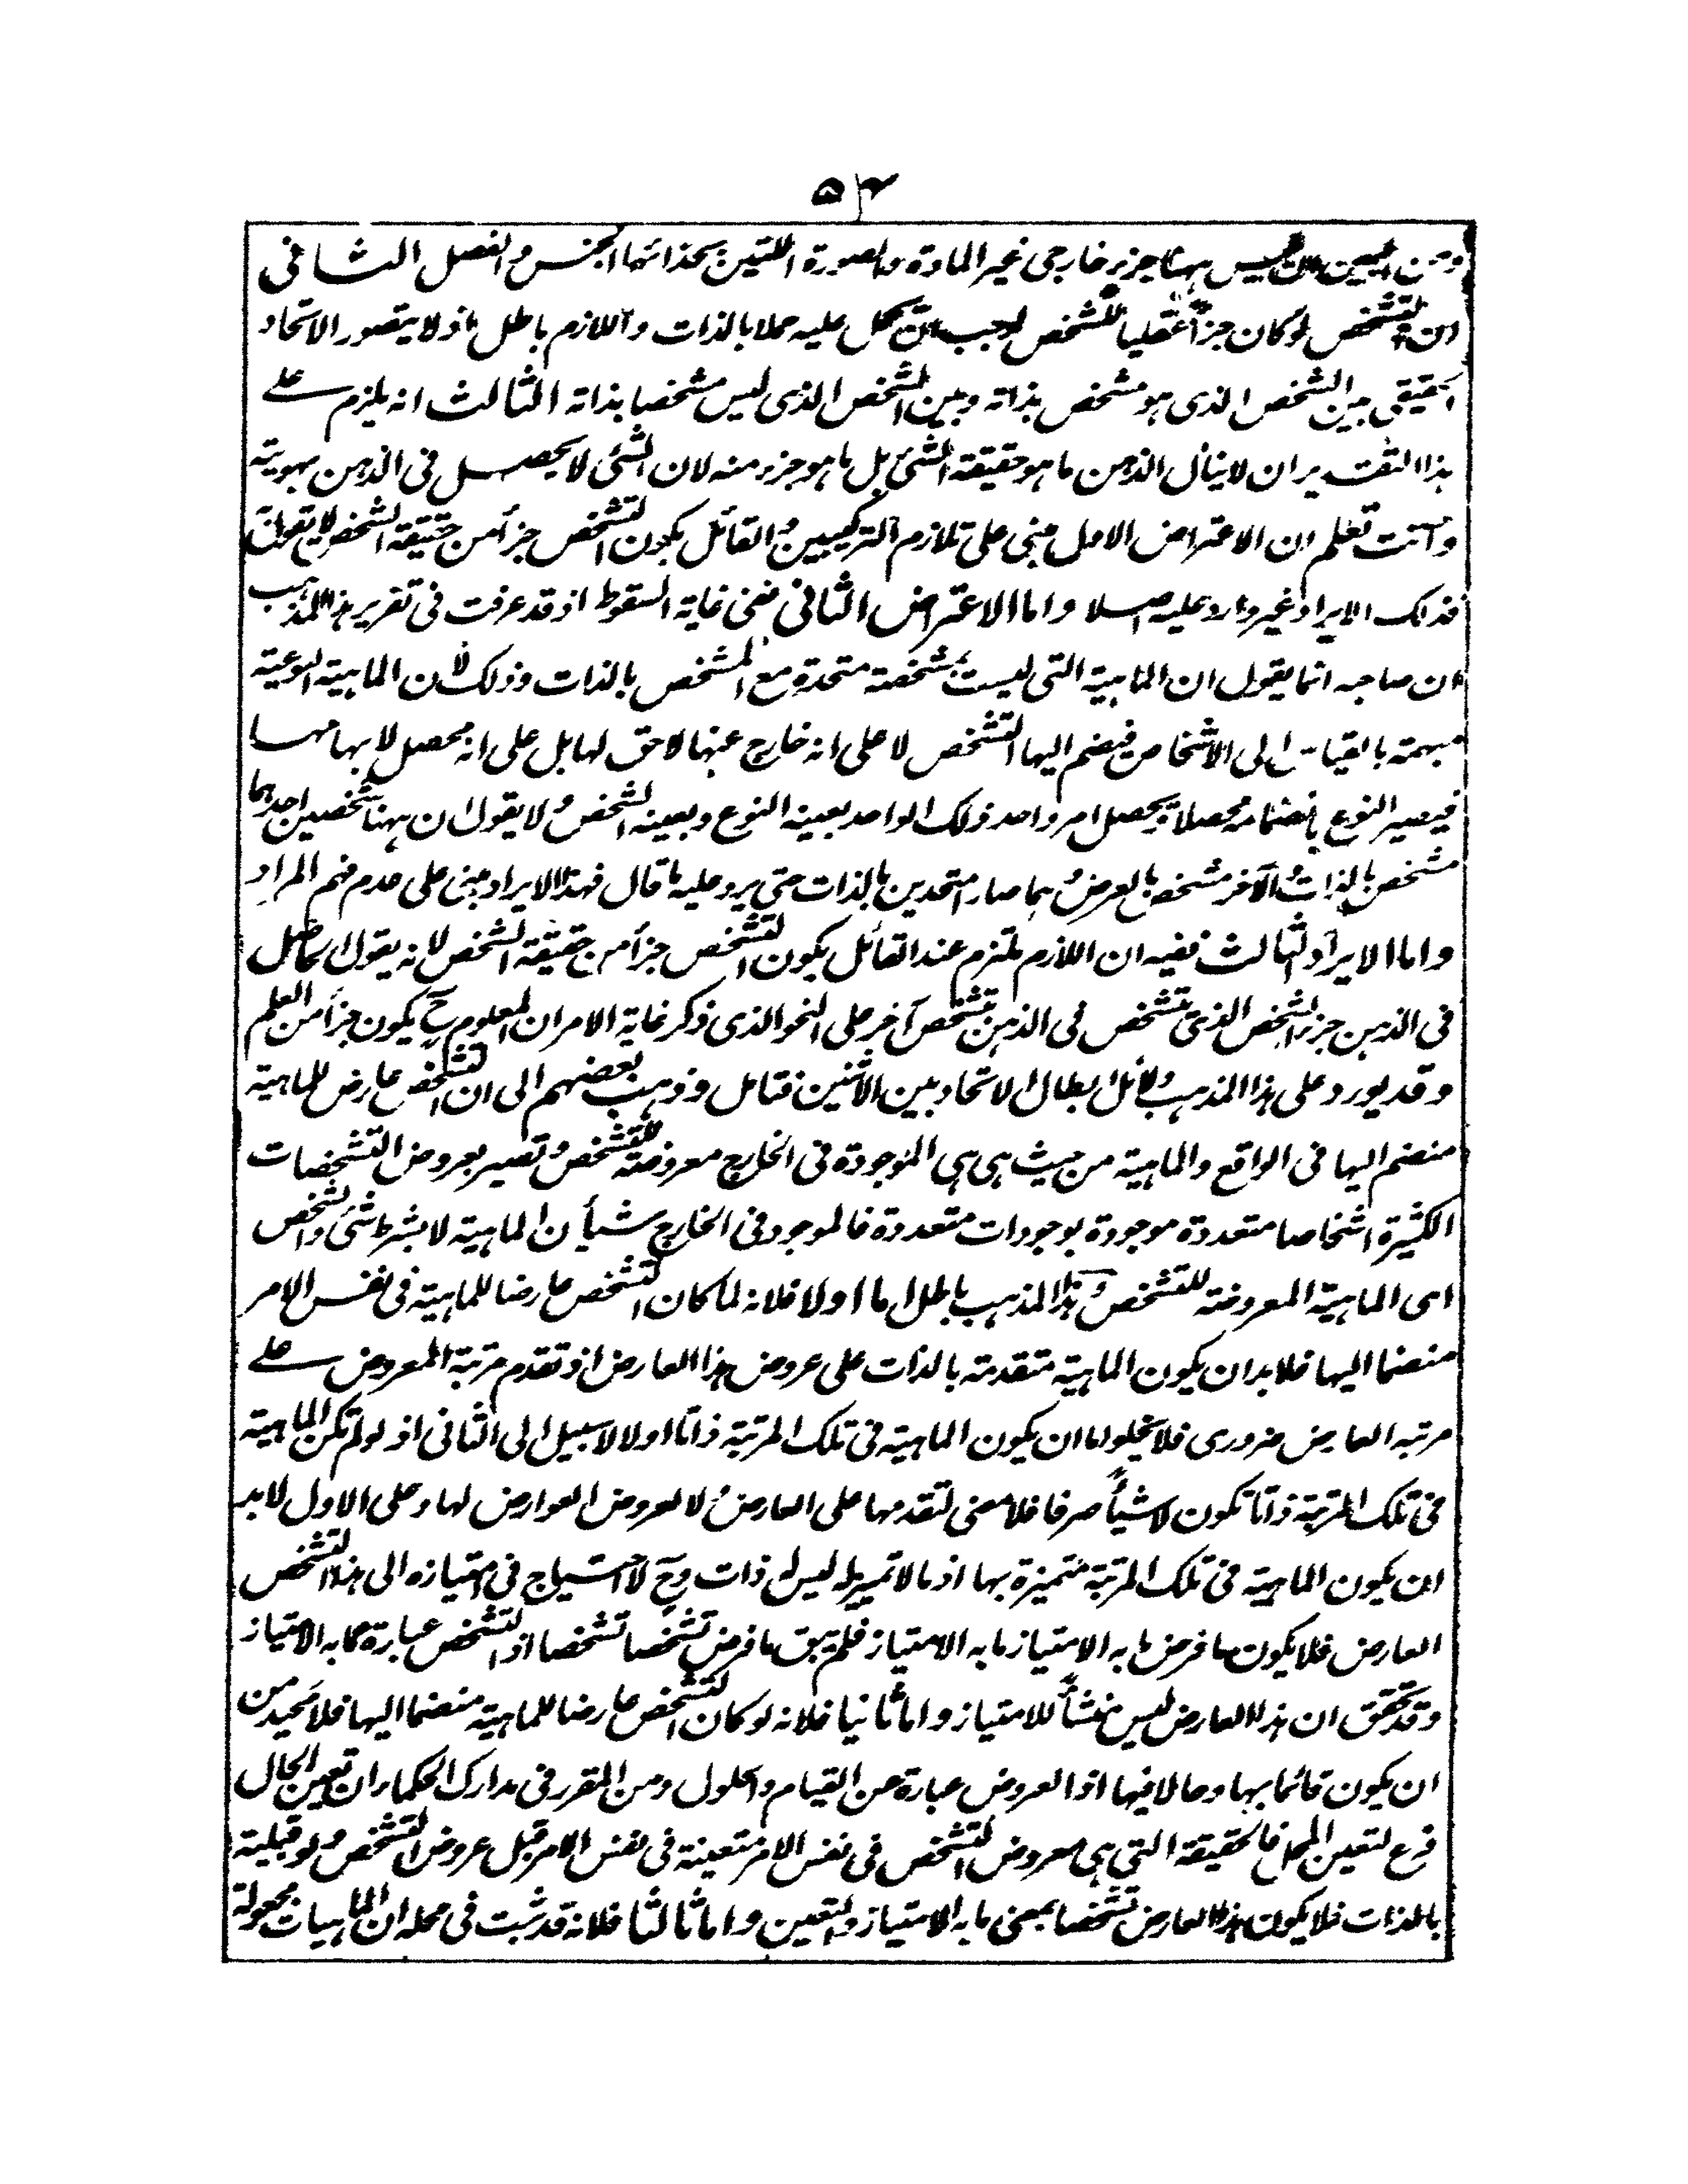 ۵۴
ومن البين ان ليس ههنا جزء خارجى غير المادة والصورة اللتين بحذائهما الجنس والفصل الثانى
ان التشخص لو كان جزأ عقليا للشخص لوجب ان يحمل عليه حملا بالذات واللازم باطل اذ لا يتصور الاتحاد
الحقيقى بين الشخص الذى هو مشخص بذاته وبين الشخص الذى ليس مشخصا بذاته الثالث انه يلزم على
هذا التقدير ان لا ينال الذهن ما هو حقيقة الشئ بل ما هو جزء منه لان الشئ لا يحصل فى الذهن بهويته
وانت تعلم ان الاعتراض الاول مبنى على تلازم التركيبين والقائل بكون التشخص جزأ من حقيقة الشخص لا يقول
فذلك الايراد غير وارد عليه اصلا واما الاعتراض الثانى ففى غاية السقوط اذ قد عرفت فى تقرير هذا المذهب
ان صاحبه انما يقول ان الماهية التى ليست مشخصة متحدة مع المشخص بالذات وذلك لان الماهية النوعية
مبهمة بالقياس الى الاشخاص فينضم اليها التشخص لا على انه خارج عنها لاحق لها بل على انه محصل لابهامها
فيصير النوع بانضمامه محصلا فيحصل امر واحد ذلك الواحد بعينه النوع وبعينه الشخص ولا يقول ان ههنا شخصين احدهما
مشخص بالذات والآخر مشخص بالعرض وهما صارا متحدين بالذات حتى يرد عليه ما قال فهذا الايراد مبنى على عدم فهم المراد
واما الايراد الثالث ففيه ان اللازم ملتزم عند القائل بكون التشخص جزأ من حقيقة الشخص لانه يقول الحاصل
فى الذهن جزء الشخص الذى تشخص فى الذهن بتشخص آخر على النحو الذى ذكر غاية الامر ان المعلوم ح يكون جزأ من العلم
وقد يورد على هذا المذهب بدلائل ابطال الاتحاد بين الاثنين فتامل وذهب بعضهم الى ان التشخص عارض للماهية
منضم اليها فى الواقع والماهية من حيث هى هى الموجودة فى الخارج معروضة للتشخص وتصير بعروض التشخصات
الكثيرة اشخاصا متعددة موجودة بوجودات متعددة فالموجود فى الخارج شيأن الماهية لا بشرط شئ والشخص
اى الماهية المعروضة للتشخص وهذا المذهب باطل اما اولا فلانه لما كان التشخص عارضا للماهية فى نفس الامر
منضما اليها فلا بد ان يكون الماهية متقدمة بالذات على عروض هذا العارض اذ تقدم مرتبة المعروض على
مرتبه العارض ضرورى فلا يخلو اما ان يكون الماهية فى تلك المرتبة ذاتا اولا لا سبيل الى الثانى اذ لو لم تكن الماهية
فى تلك المرتبة ذاتا تكون لا شيأ صرفا فلا معنى لتقدمها على العارض ولا لعروض العوارض لها وعلى الاول لا بد
ان يكون الماهية فى تلك المرتبة متميزة بها اذ ما لا تميز له ليس له ذات وح لا احتياج فى امتيازه الى هذا التشخص
العارض فلا يكون ما فرض ما به الامتياز ما به الامتياز فلم يبق ما فرض تشخصا تشخصا اذ التشخص عبارة عما به الامتياز
وقد تحقق ان هذا العارض ليس منشأ للامتياز واما ثانيا فلانه لو كان التشخص عارضا للماهية منضما اليها فلا محيد من
ان يكون قائما بها وحالا فيها اذ العروض عبارة عن القيام والحلول ومن المقرر فى مدارك الحكماء ان تعين الحال
فرع لتعين المحل فالحقيقة التى هى معروض التشخص فى نفس الامر متعينة فى نفس الامر قبل عروض التشخص ولو قبلية
بالذات فلا يكون هذا العارض تشخصا بمعنى ما به الامتياز والتعين واما ثالثا فلانه قد ثبت فى محله ان الماهيات مجعولة